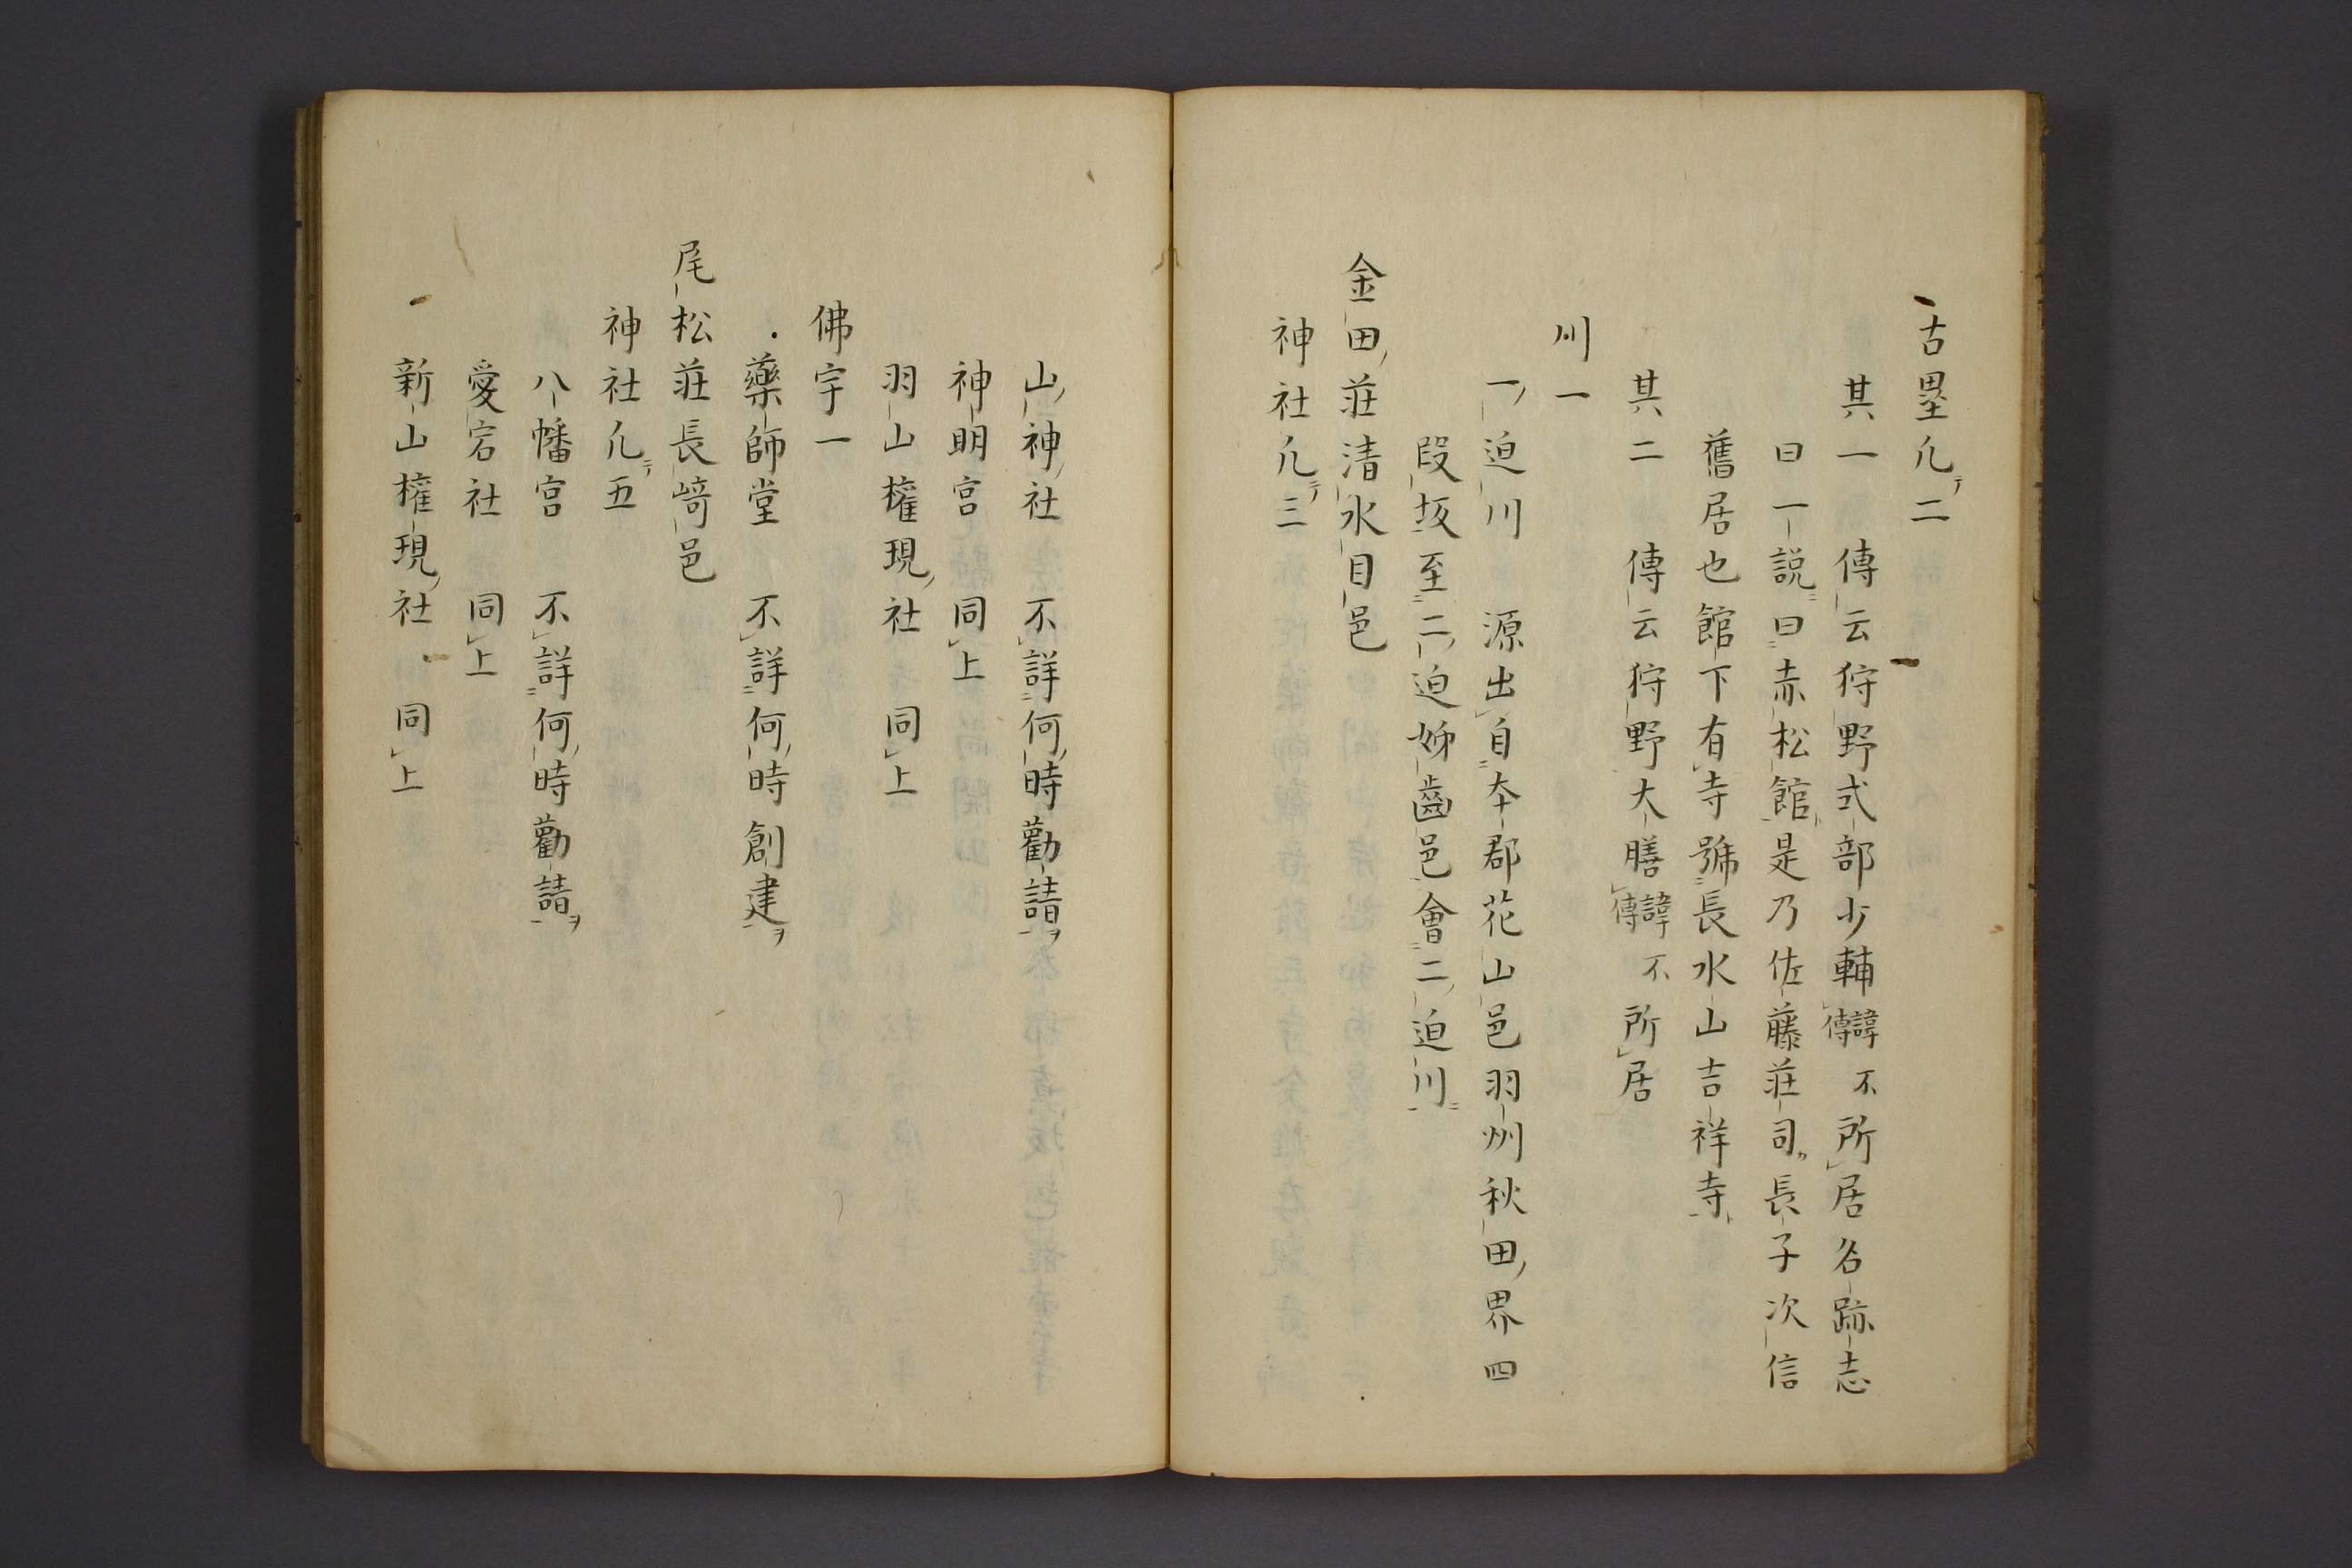 古壘凢二
其一 傳云狩野式部少輔諱不傳所居名跡志
曰一說曰赤松館是乃佐藤莊司長子次信
舊居也館下有寺號長水山吉祥寺
其二 傳云狩野大膳諱不傳所居
川一
一迫川 源出自本郡花山邑羽州秋田界四
段坂至二迫姊齒邑會二迫川
金田莊清水目邑
神社凢三
山神社 不詳何時勸請
神明宮 同上
羽山權現社 同上
佛宇一
藥師堂 不詳何時創建
尾松莊長﨑邑
神社凢五
八幡宮 不詳何時勸請
愛宕社 同上
新山權現社 同上